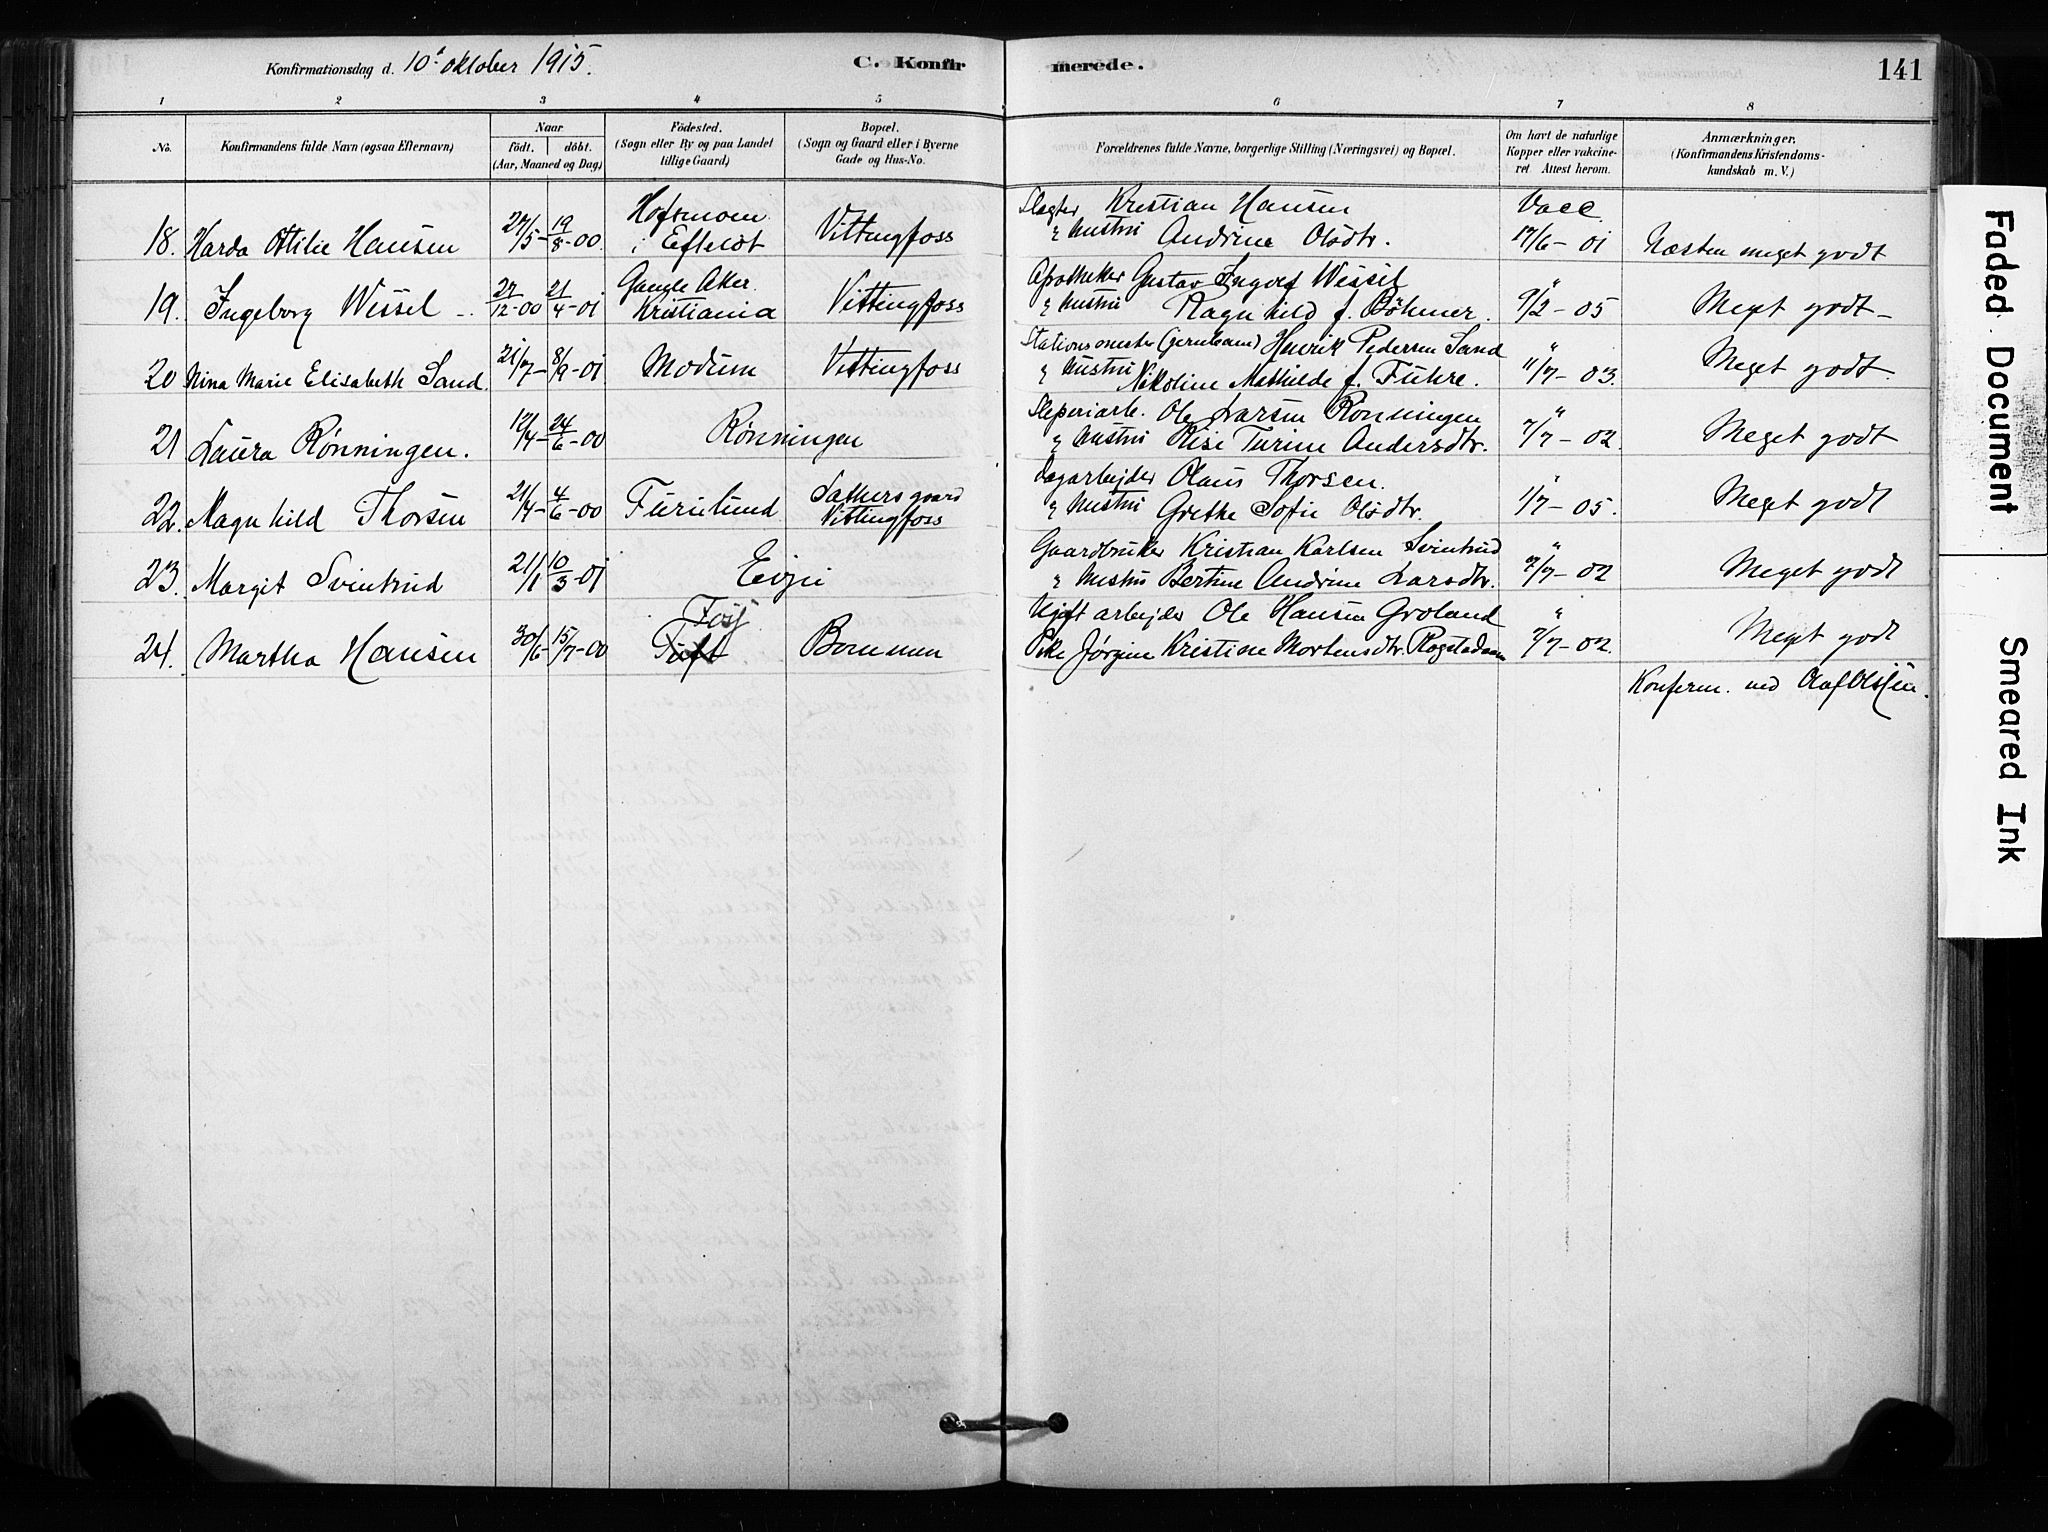 Konfirmationsdag d. 10' oktober 1915. C. Konfirmerede. 141
1 2 3 4 5 6 7 8
No. Konfirmandens fulde Navn (ogsaa Efternavn) Naar födt. döbt. (Aar, Maaned og Dag) Födested. (Sogn eller By og paa Landet tillige Gaard) Bopæl. (Sogn og Gaard eller i Byerne Gade og Hus-No. Forældrenes fulde Navne, borgerlige Stilling (Næringsvei) og Bopæl. Om havt de naturlige Kopper eller vakcineret Attest herom. Anmærkninger. (Konfirmandens Kristendomskundskab m. V.)
Hofsmoen Slagter Kristian Hansen Vacc.
18. Harda Ottilie Hansen 27/5- 19/8-00 i Efteløt Vittingfoss & hustru Andrine Olsdtr. 17/6-01 Næsten meget godt
Gaugle Aker Apotheker Gustav Ingvef Wessel "
19. Ingeborg Wessel 27/12-00 21/4-01 Kristiania Vittingfoss & hustru Ragnhild f. Böhmer. 9/2-05 Meget godt
Stationsmester (jernbam) Henrik Pedersen Sand "
20 Nina Marie Elisabeth Sand 21/7- 8/9-01 Modum Vittingfoss & hustru Nikoline Mathilde f. Fuhre. 11/7-03. Meget godt.
Sleperiarb. Ole Larsen Rønningen "
21 Laura Rønningen. 12/4- 24/6-00 Rønningen & hustru Rise Turine Andersdtr. 7/7-02 Meget godt
Dagarbejder Olaus Thorsen. "
22. Magnhild Thorsen 21/4- 4/6-00 Furulund Sathersgaard Vittingfoss & hustru Grethe Sofie Olsdtr. 1/7-05. Meget godt
Gaardbruker Kristian Karlsen Svintrud "
23. Margit Svintrud 21/1 10/3-01 Evju & hustru Bertine Andrine Larsdtr. 7/7-02 Meget godt
Fosj Ugift arbejder Ole Hansen Groland "
24. Martha Hansen 30/6- 15/7-00 Tuft Bommen Pike Jørgine Kristine Mortensdtr. Rogstadmoen 7/7-02. Meget godt
Konferm. ved Olaf Olssen.
Faded Document
Smeared Ink